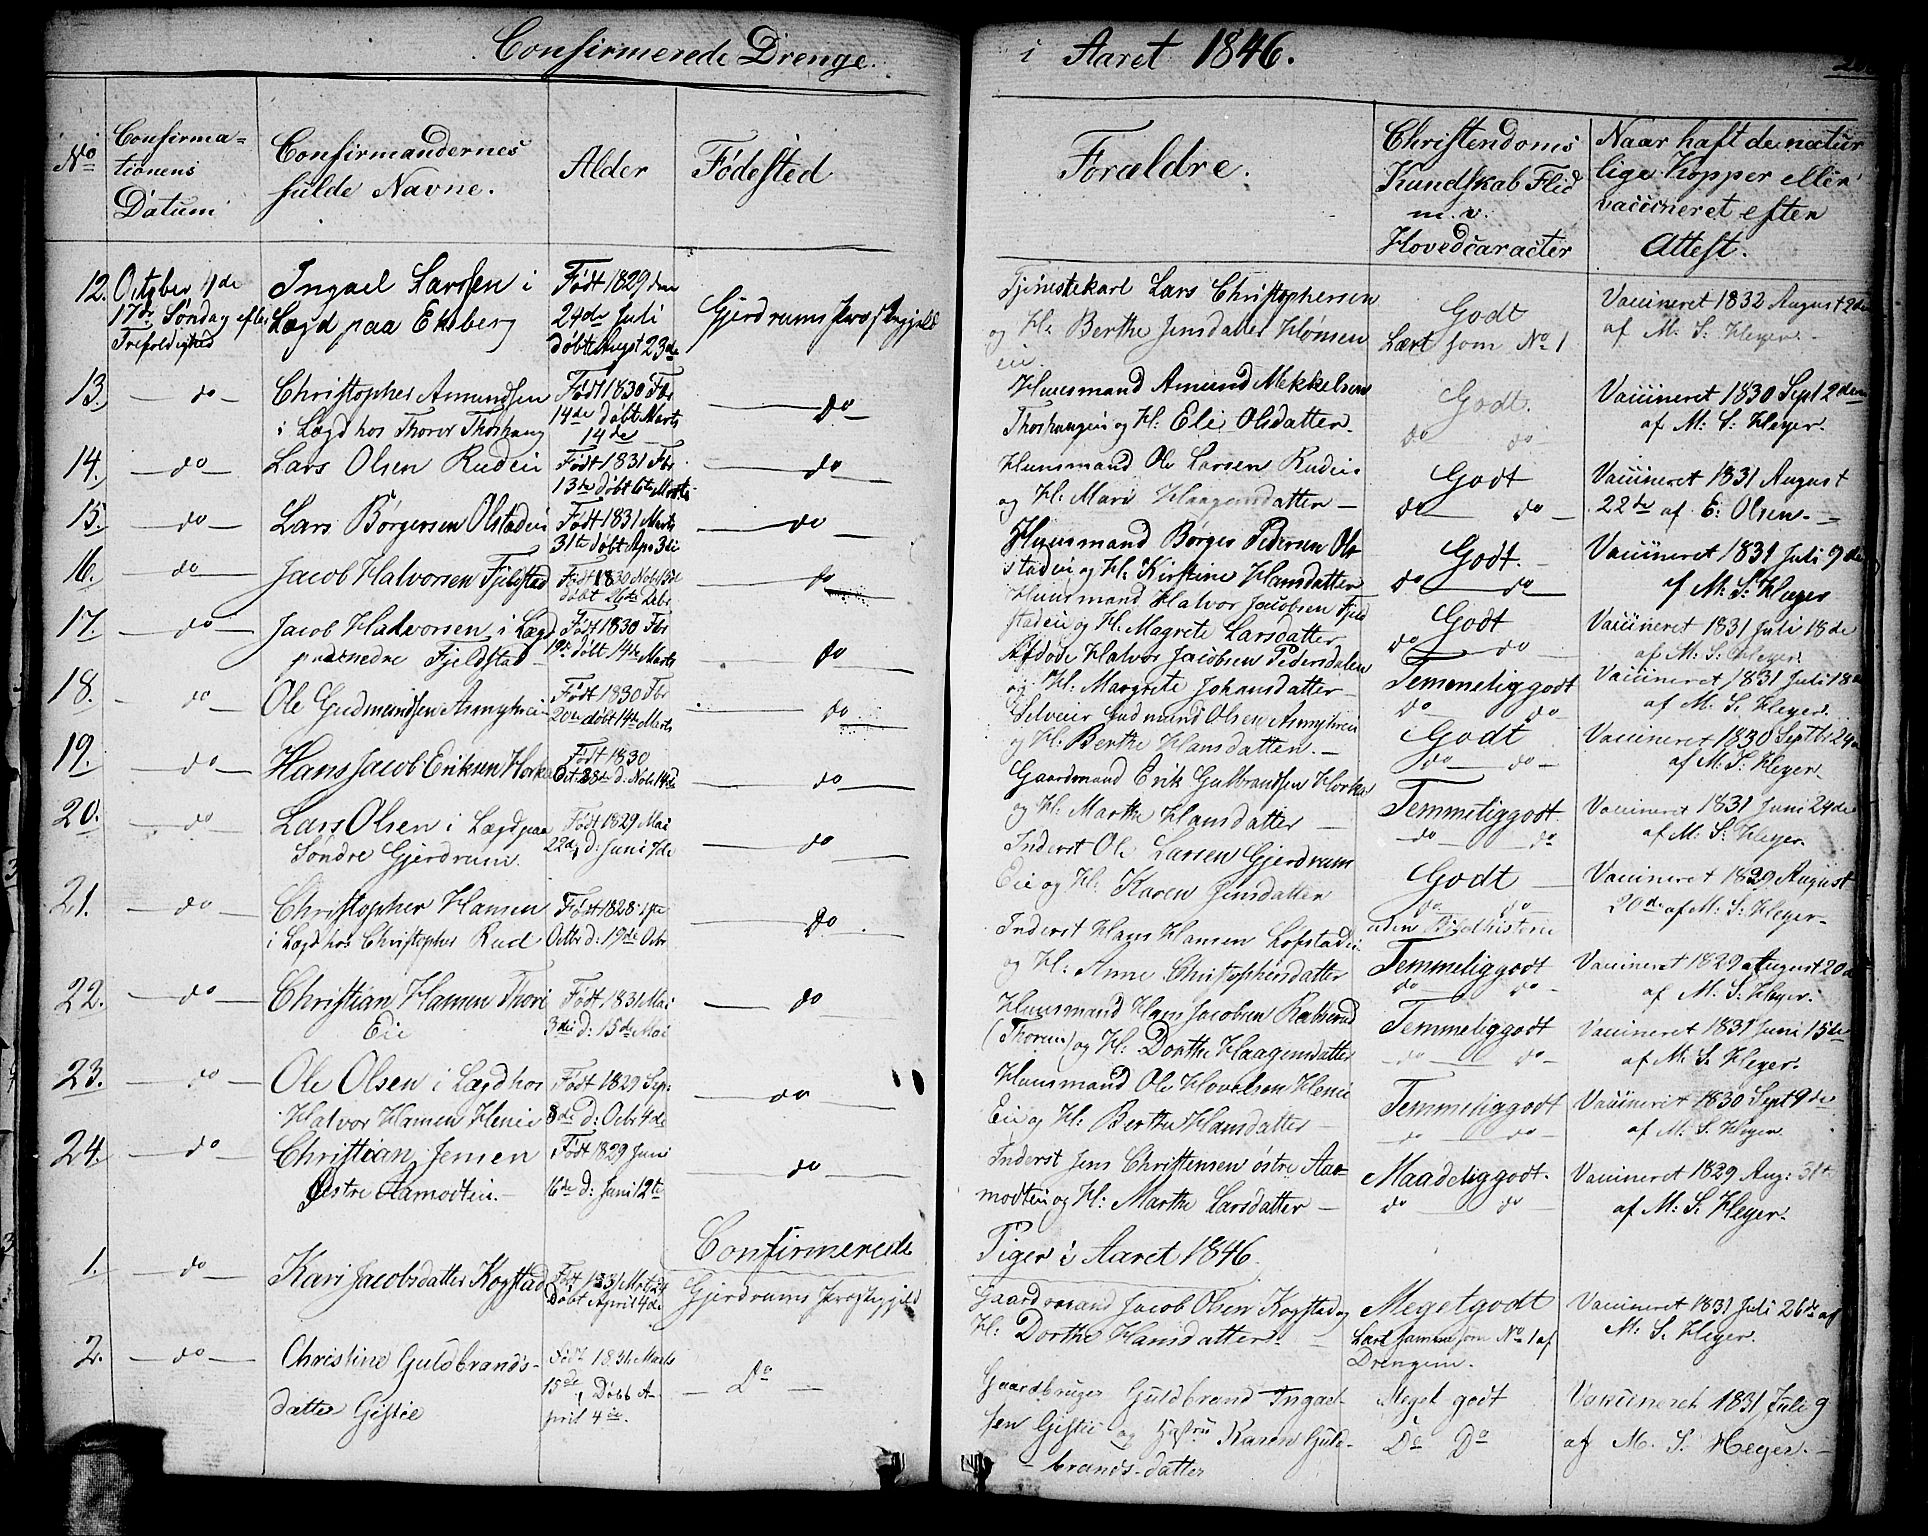 Confirmerede Drenge i Aaret 1846.
No
Confirma-
tionens
Datum
Confirmandernes
fulde Navne.
Alder
Fødested
Forældre.
Christendoms
Kundskab Flid
m. v.
Hovedcaracter
Naar haft de natur
lige Kopper eller
vaccineret efter
Attest.
12.
October 4de
17de Søndag efter
Trefoldighed
Ingael Larssen i
Lægd paa Ekeberg
Født 1829 den
24de Juli
døbt August 23de
Gjerdrums Præstegjeld
Tjenistekarl Lars Christophersen
og H: Berthe Jensdatter Hønsen
eie
Godt
Lært som No 1
Vaccineret 1832 August 2de
af M: S: Heyer.
13.
do
Christopher Amundsen
i Lægd hos Thorer Thorshaug
Født 1830 Fbr
14de døbt Marts
14de
do
Huusmand Amund Mekkelsen
Thorshaugen og H: Eli Olsdatter
Godt.
do do
Vaccineret 1830 Sept 2den
af M: S: Heyer.
14.
do
Lars Olsen Rudeie
Født 1831 Fbr
13de døbt 6te Marts
do
Huusmand Ole Larsen Rudeie
og H: Mari Haagensdatter
Godt
do do
Vaccineret 1831 August
22de af E: Olsen.
15.
do
Lars Børgersen Olstadeie
Født 1831 Marts
31te døbt Apr 3die
do
Huusmand Børger Pedersen Ol-
stadeie og H: Kirstine Hansdatter
Godt.
do do
Vaccineret 1831 Juli 9de
af M: S: Heyer
16.
do
Jacob Halvorsen Fjeldstad
Født 1830 Nobr 13de
døbt 26te Debr
do
Huusmand Halvor Jacobsen Fjeld
stadeie og H: Magrete Larsdatter
Godt
do do
Vaccineret 1831 Juli 18de
af M: S: Heyer.
17.
do
Jacob Halvorsen i Lægd
paa nedre Fjeldstad
Født 1830 Fbr
19de døbt 14de Marts
do
Afdøde Halvor Jacobsen Pedersdalen
og H: Margrete Johansdatter
Temmeliggodt
do do
Vaccineret 1831 Juli 18de
af M: S. Heyer.
18.
do
Ole Gudmundsen Asmyhreie
Født 1830 Fbr
20de døbt 14de Marts
do
Selveier Gudmund Olsen Asmyhreie
og H: Berthe Hansdatter.
Godt
do do
Vaccineret 1830 Septbr 24de
af M: S: Heyer.
19.
do
Hans Jacob Eriksen Horka
Født 1830
Oct. 28de d: Nobr 14de
do
Gaardmand Erik Gulbrandsen Horka
og H: Marthe Hansdatter
Temmeliggodt.
do do
Vaccineret 1831 Juni 24de
af M: S: Heyer.
20.
do
Lars Olsen i Lægd paa
Søndre Gjerdrum.
Født 1829 Mai
22de d: Juni 7de
do
Inderst Ole Larsen Gjerdrum
Eie og H: Karen Jensdatter
Godt
do do
uden Bibelhistorie
Vaccineret 1829 August
20de af M: S: Heyer.
21.
do
Christopher Hansen
i Lægd hos Christopher Rud
Født 1828 1ste
Octbr d: 19de Ocbr
do
Inderst Hans Hansen Lofstadeie
og H: Anne Christophersdatter
Temmeliggodt
do do
Vaccineret 1829 August 20de
af M: S: Heyer.
22.
do
Christian Hansen Thori
Eie
Født 1831 Mai
3die d: 15de Mai
do
Huusmand Hans Jacobsen
(Thoreie) og H: Dorthe Haagensdatter
Temmeliggodt
do do
Vaccineret 1831 Juni 15de
af M: S. Heyer.
23.
do
Ole Olsen i Lægd hos
Halvor Hansen Henie
Født 1829 Sep:
8de d: Ocbr 4de
do
Huusmand Ole Hovelsen Henie
Eie og H: Berthe Hansdatter
Temmeliggodt
do do
Vaccineret 1830 Sept 9de
af M: S. Heyer.
24.
do
Christian Jensen
Østre Aamodteie.
Født 1829 Juni
16de d: Juni 12te
do
Inderst Jens Christensen østre Aa-
modteie og H: Marthe Larsdatter
Maadeliggodt.
do do
Vaccineret 1829 Aug: 31te
af M: S. Heyer.
Confirmerede Piger i Aaret 1846.
1.
do
Kari Jacobsdatter Kogstad
Født 1831 Mat 24
Døbt April 4de
Gjerdrums Præstegjeld
Gaardmand Jacob Olsen Kogstad og
H: Dorthe Hansdatter
Megetgodt
Lært samme som No 1 af
Drengene.
Vaccineret 1831 Juli 26de af
M: S. Heyer.
2.
do
Christine Guldbrands-
datter Gistie
Født 1831 Marts
15de, Døbt A-
pril 4de.
Do
Gaardbruger Guldbrand Ingael-
sen Gistie og Hustru Karen Guld-
brands-datter
Meget godt
Do Do
Vaccineret 1831 Juli 9
af M. S. Heyer.